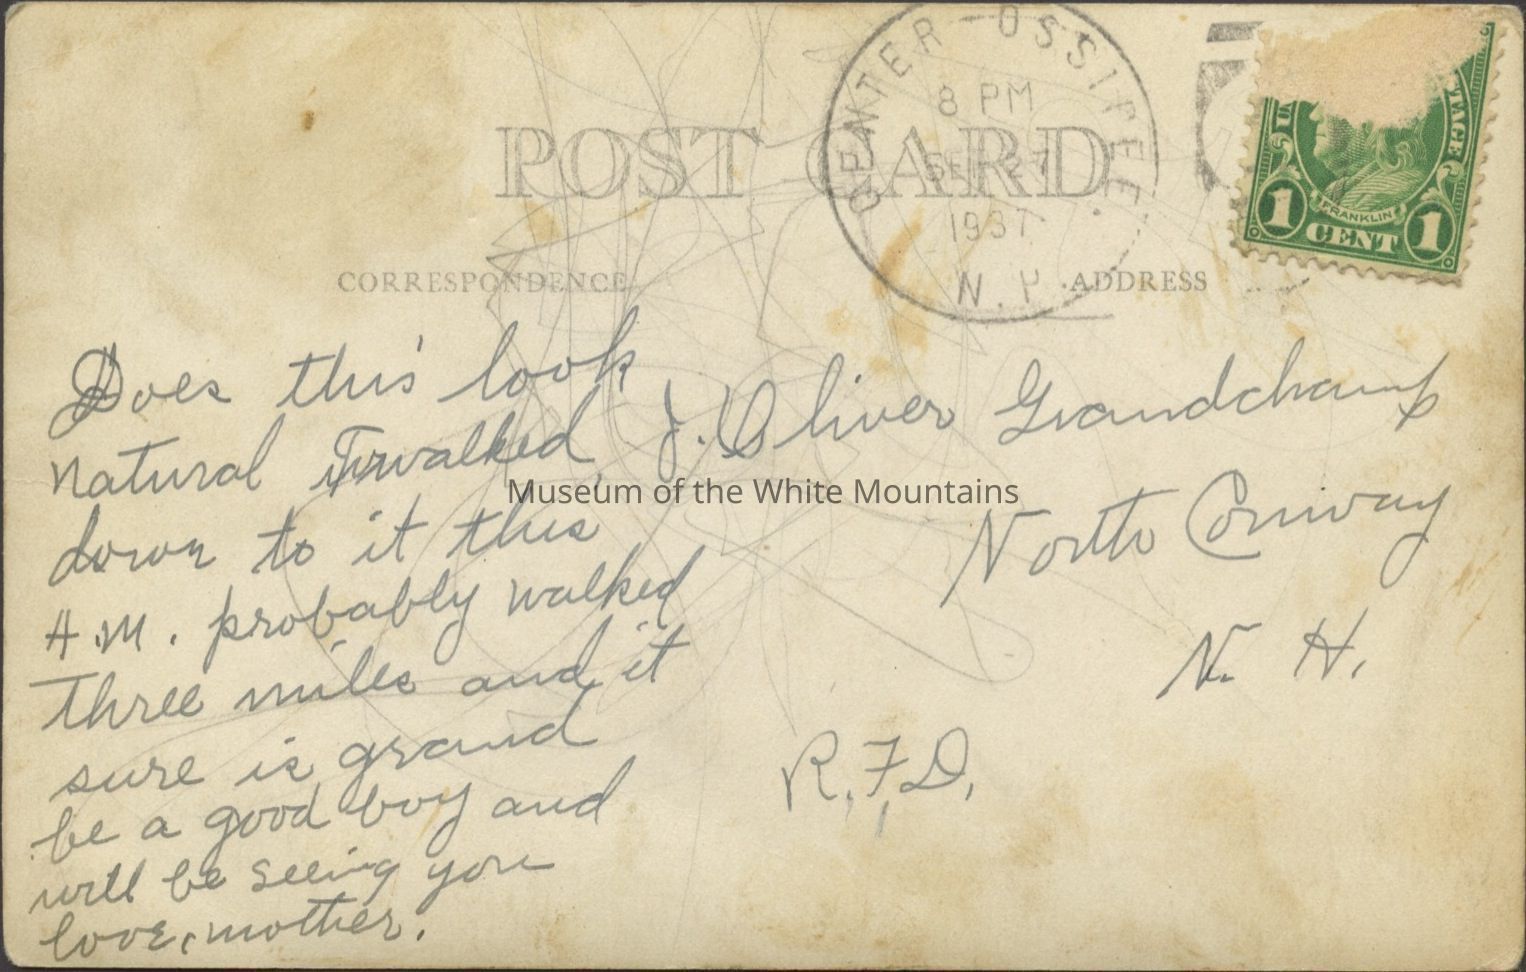 CENTER OSSIPEE.
8 PM
SEP 27
1937
N.H.
POST CARD
CORRESPONDENCE
ADDRESS
FRANKLIN
1 CENT 1
Does this look
natural I walked
down to it this
A.M. probably walked
three miles and it
sure is grand
be a good boy and
will be seeing you
love, mother.
J. Oliver Grandchamp
North Conway
N. H.
R.F.D.
Museum of the White Mountains